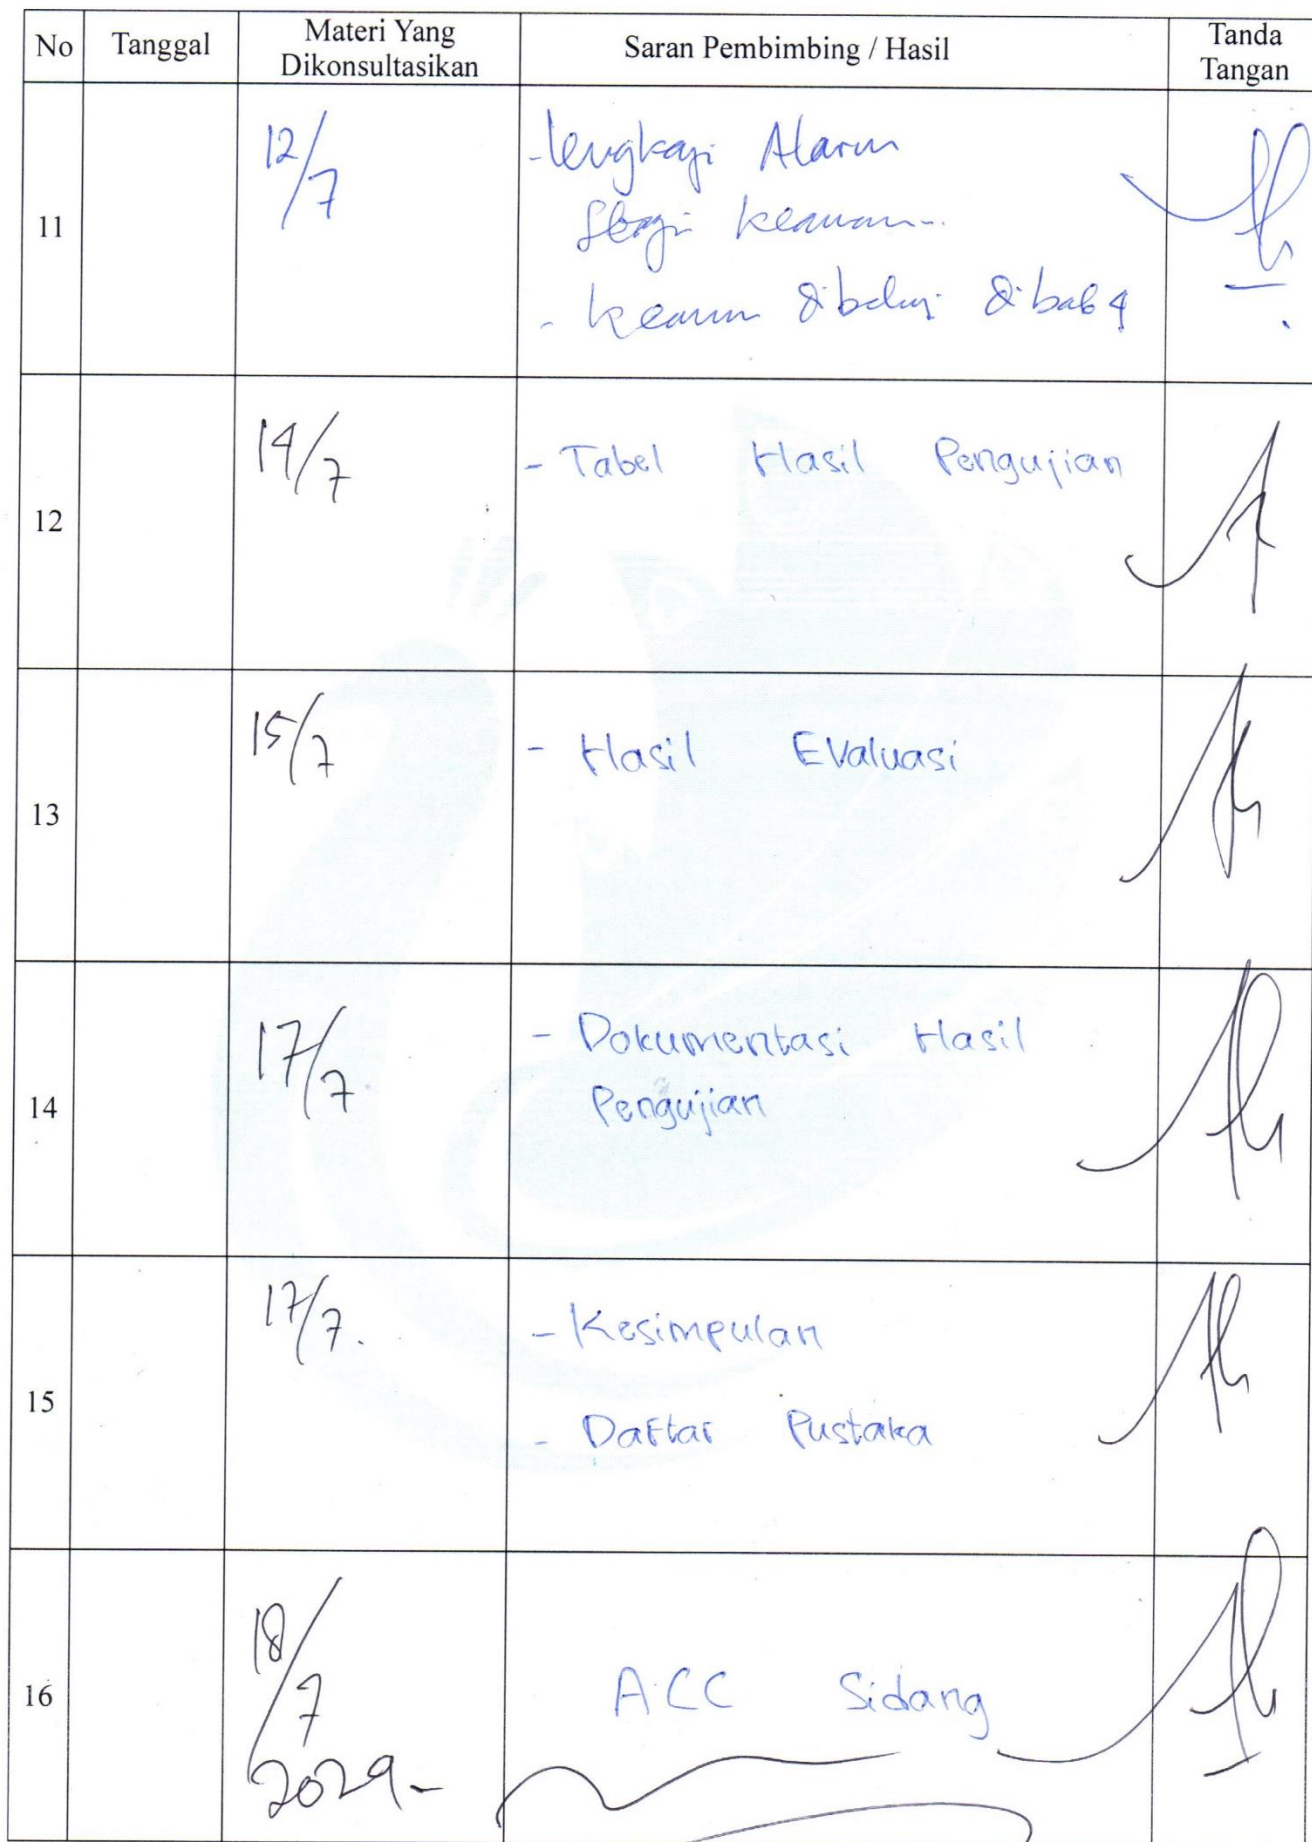 No Tanggal Materi Yang Dikonsultasikan Saran Pembimbing / Hasil Tanda Tangan
11 12/7 - lengkapi Alarm
- dibab 4
12 14/7 - Tabel Hasil Pengujian
13 15/7 - Hasil Evaluasi
14 17/7 - Dokumentasi Hasil
Pengujian
15 17/7. - Kesimpulan
- Daftar Pustaka
16 18/7 ACC Sidang
2024